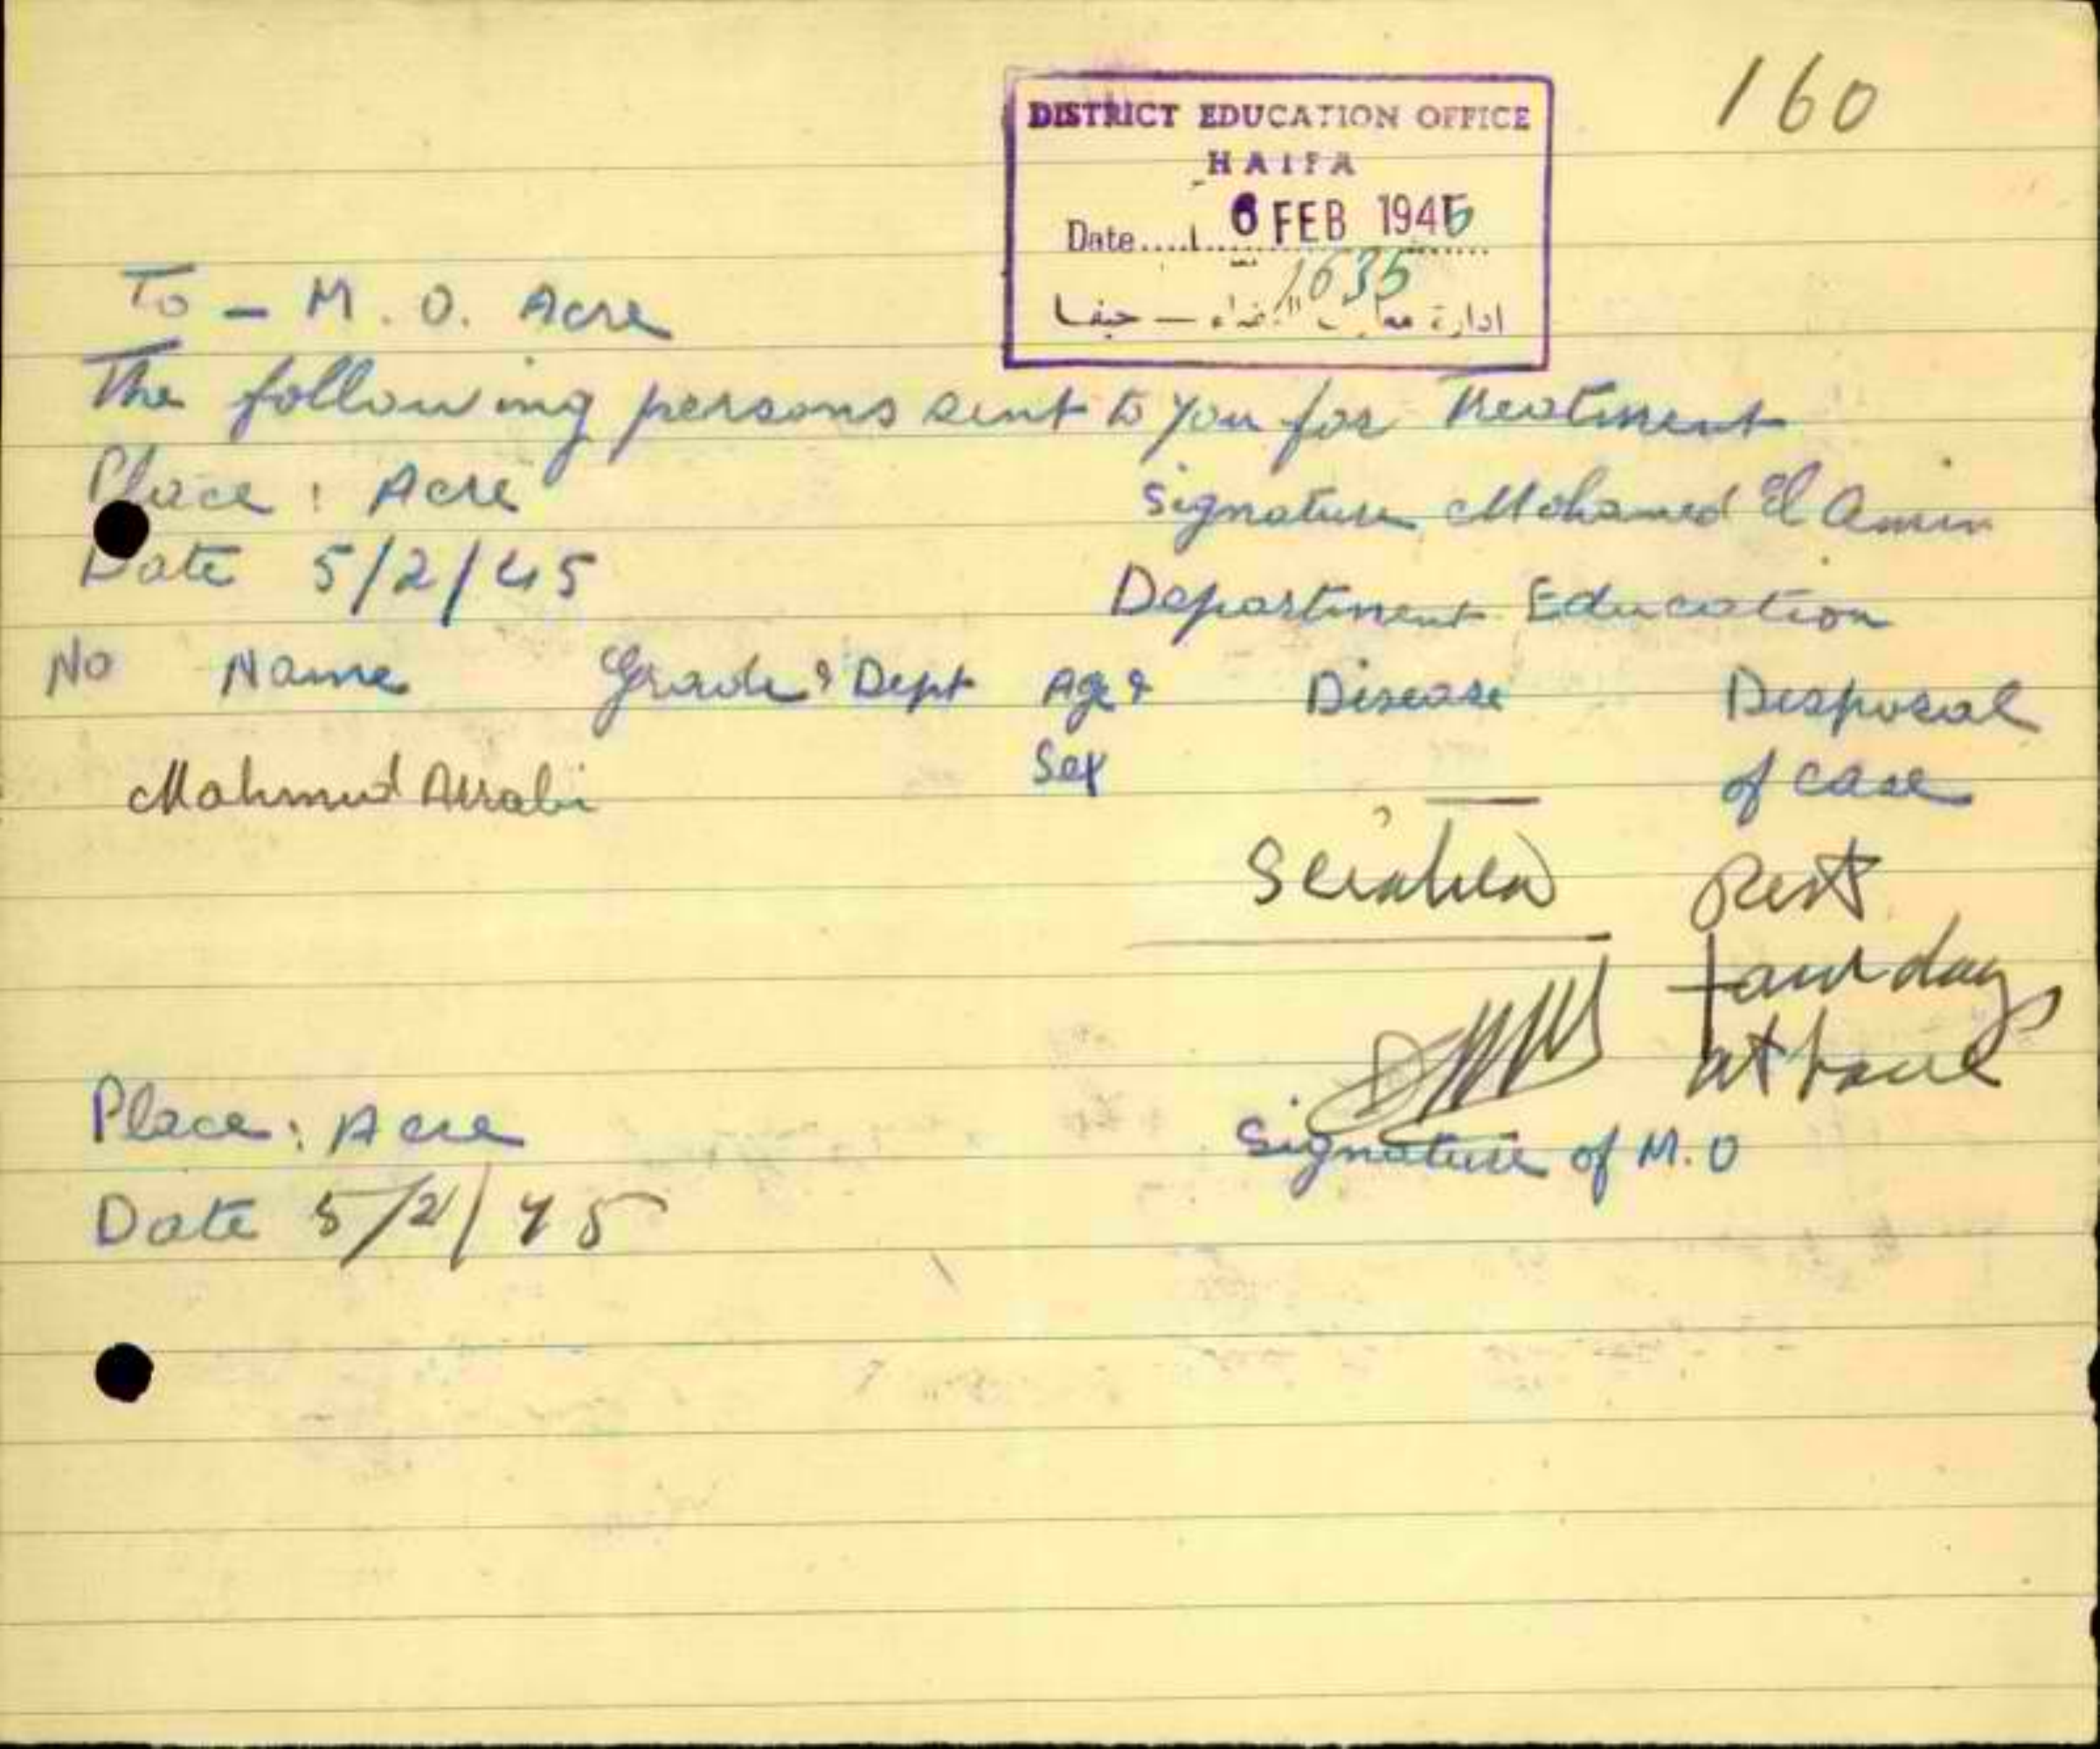 160
DISTRICT EDUCATION OFFICE
HAIFA
Date 6 FEB 1945
1635
ادارة معارف اللواء — حيفا
To – M. O. Acre
The following persons sent to you for Treatment
Place : Acre
Signature Mohamed El Amin
Date 5/2/45
Department Education
No Name Grade & Dept Age & Disease Disposal
Sex of case
Mahmud Arrabi
Rest
four days
at home
Place : Acre
Signature of M.O
Date 5/2/45